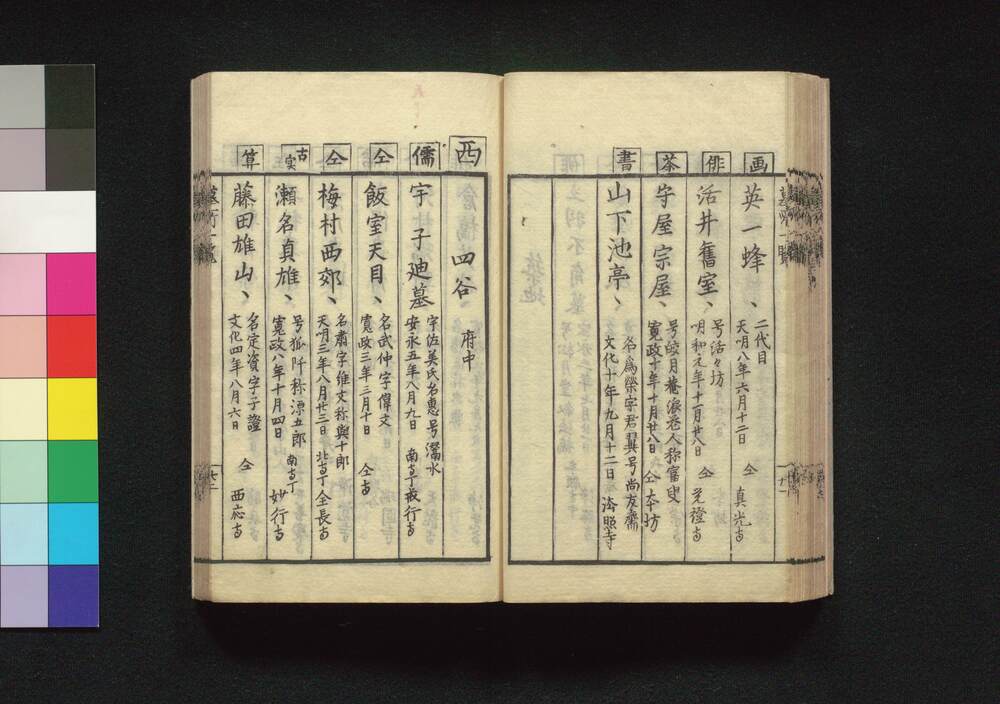 画
英一蜂、
二代目
天明八年六月十二日
仝
真光寺
俳
活井舊室、
号活々坊
明和元年十一月廿八日
仝
茶
守屋宗屋、
号皎月菴浪花老人称富史
寛政十年十月廿八日
仝本坊
書
山下池亭、
名為榮字君翼号尚友齋
文化十年九月十二日
西
四谷
府中
儒
宇子廸墓
宇佐美氏名惠号灊水
安永五年八月九日
南寺丁戒行寺
仝
飯室天目、
名武仲字偉文
寛政三年三月十日
仝寺
仝
梅村西郊、
名肅字維文称與十郎
天明三年八月廿三日
北寺丁全長寺
古実
瀬名貞雄、
号狐阡称源五郎
寛政八年十月四日
南寺丁
妙行寺
算
藤田雄山、
名定資字子證
文化四年八月六日
仝
西応寺